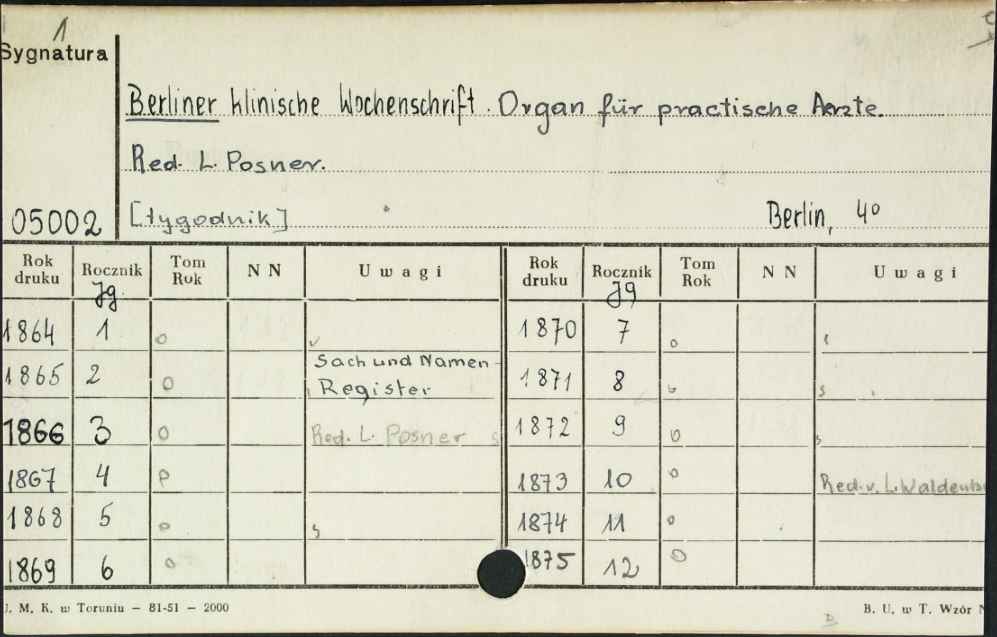 1
Sygnatura
Berliner klinische Wochenschrift. Organ für practische Aerzte.
Red. L. Posner.
05002 [tygodnik] Berlin, 4º
Rok druku Rocznik Tom Rok N N Uwagi Rok druku Rocznik Tom Rok N N Uwagi
Jg. Jg
1864 1 o 1870 7 o
1865 2 o Sach und Namen- Register 1871 8 o
1866 3 o Red. L. Posner 1872 9 o
1867 4 P 1873 10 o Red. v. L.
1868 5 o 1874 11 o
1869 6 o 1875 12 o
J. M. K. w Toruniu — 81-51 — 2000 B. U. w T. Wzór